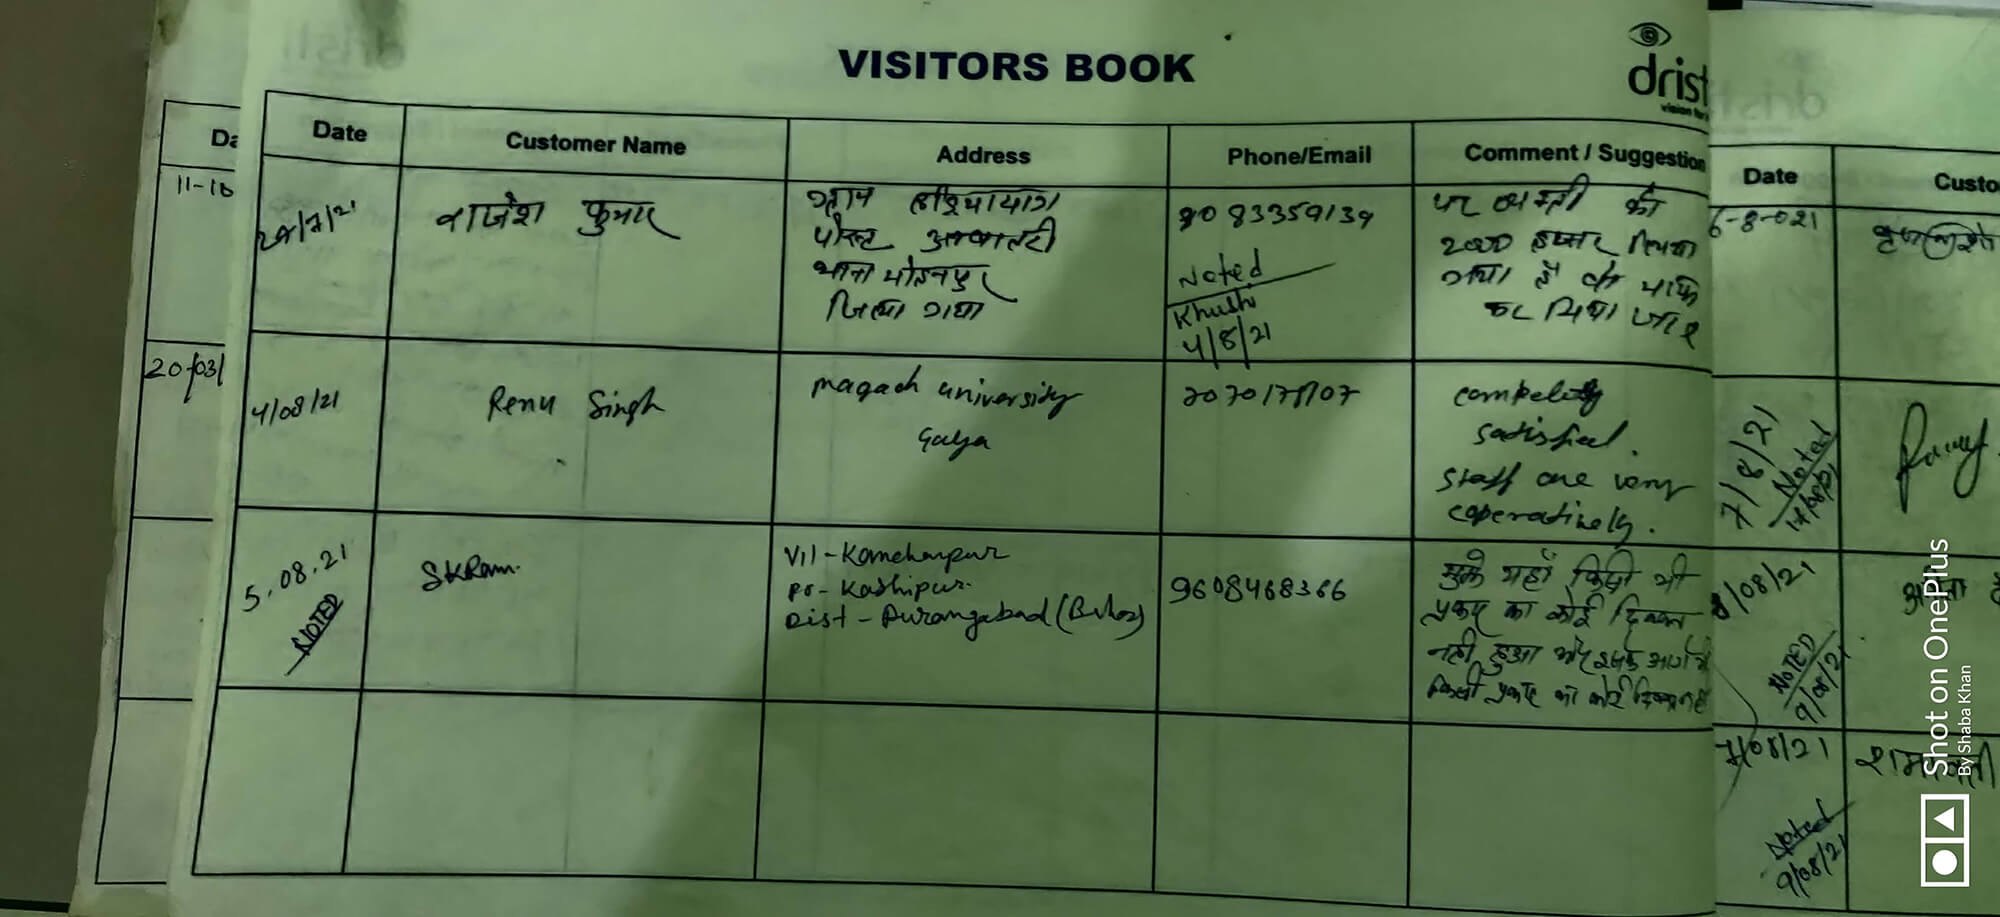 dristi
VISITORS BOOK
drist
Da
Date
Customer Name
Address
Phone/Email
Comment / Suggestion
Date
Custo
11-10
20/03/
29/7/21
राजेश कुमार
ग्राम
पोस्ट
थाना मोहनपुर
जिला गया
9083359139
Noted
Khushi
4/8/21
पर व्यक्ती को
2000 हजार लिया
गया है वो माफ
कर दिया जाए
4/08/21
Renu Singh
magadh university
Gaya
completely
satisfied.
staff are very
coperatively.
5.08.21
NOTED
SKRam.
Vil - Kanchanpur
Po - Kashipur
Dist - Aurangabad (Bihar)
9608468366
मुझे यहाँ किसी भी
प्रकार का कोई दिक्कत
नही हुआ और इसके आगे भी
किसी प्रकार का कोई दिक्कत
6-8-021
7/8/21
Noted
/08/21
NOTED
9/08/21
/08/21
Noted
9/08/21
Shot on OnePlus
By Shaba Khan